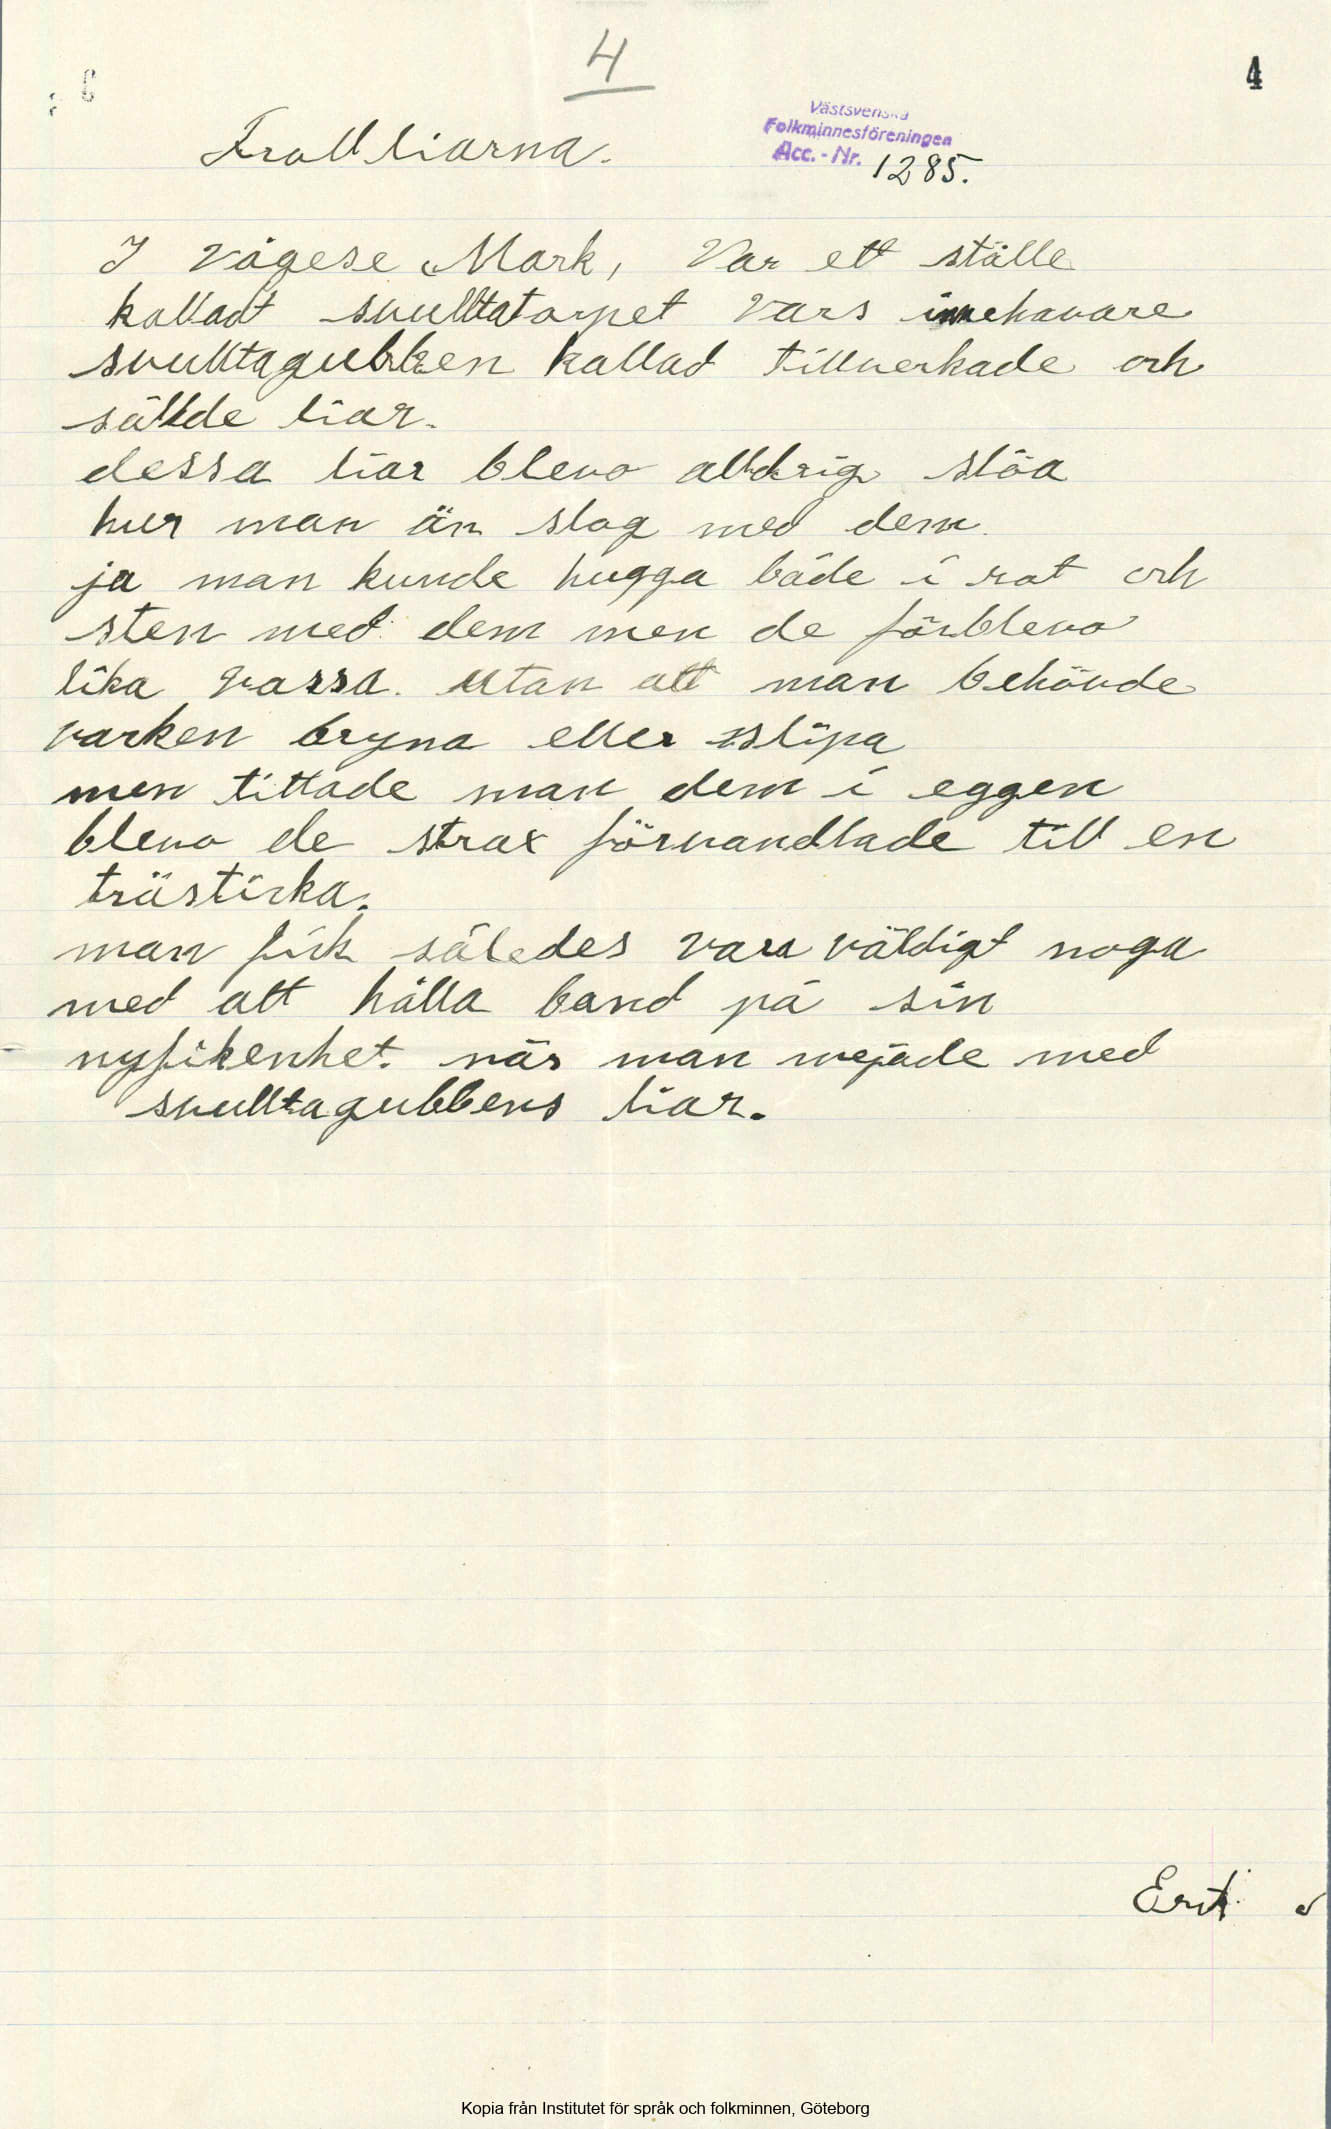 4
4
Västsvenska
Folkminnesföreningen
Acc.-Nr. 1285.
Trollliarna.
I vågese Mark, Var ett ställe
kalladt svulltatorpet vars innehavare
svulltagubben kallad tillverkade och
sålde liar.
dessa liar blevo alldrig slöa
hur man än slog med dem
ja man kunde hugga både i rot och
sten med dem men de förblevo
lika vassa. utan att man behövde
varken bryna eller slipa
men tittade man dem i eggen
blevo de strax förvandlade till en
trästicka.
man fick således vara väldigt noga
med att hålla band på sin
nyfikenhet. när man mejade med
svulltagubbens liar.
Kopia från Institutet för språk och folkminnen, Göteborg